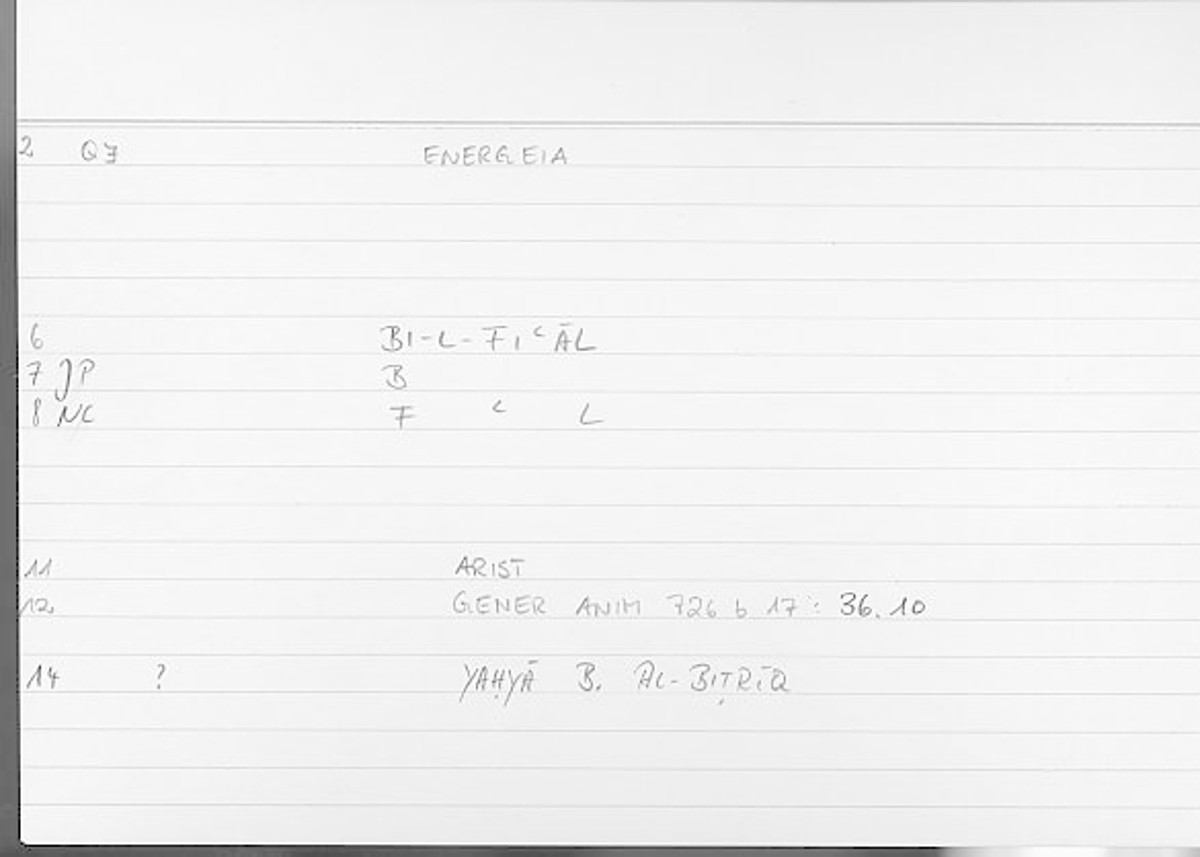 2 QF ENERGEIA
6 BI-L-FIʿĀL
7 JP B
8 NC F ʿ L
11 ARIST
12 GENER ANIM 726 b 17 : 36.10
14 ? YAḤYĀ B. AL-BIṬRĪQ